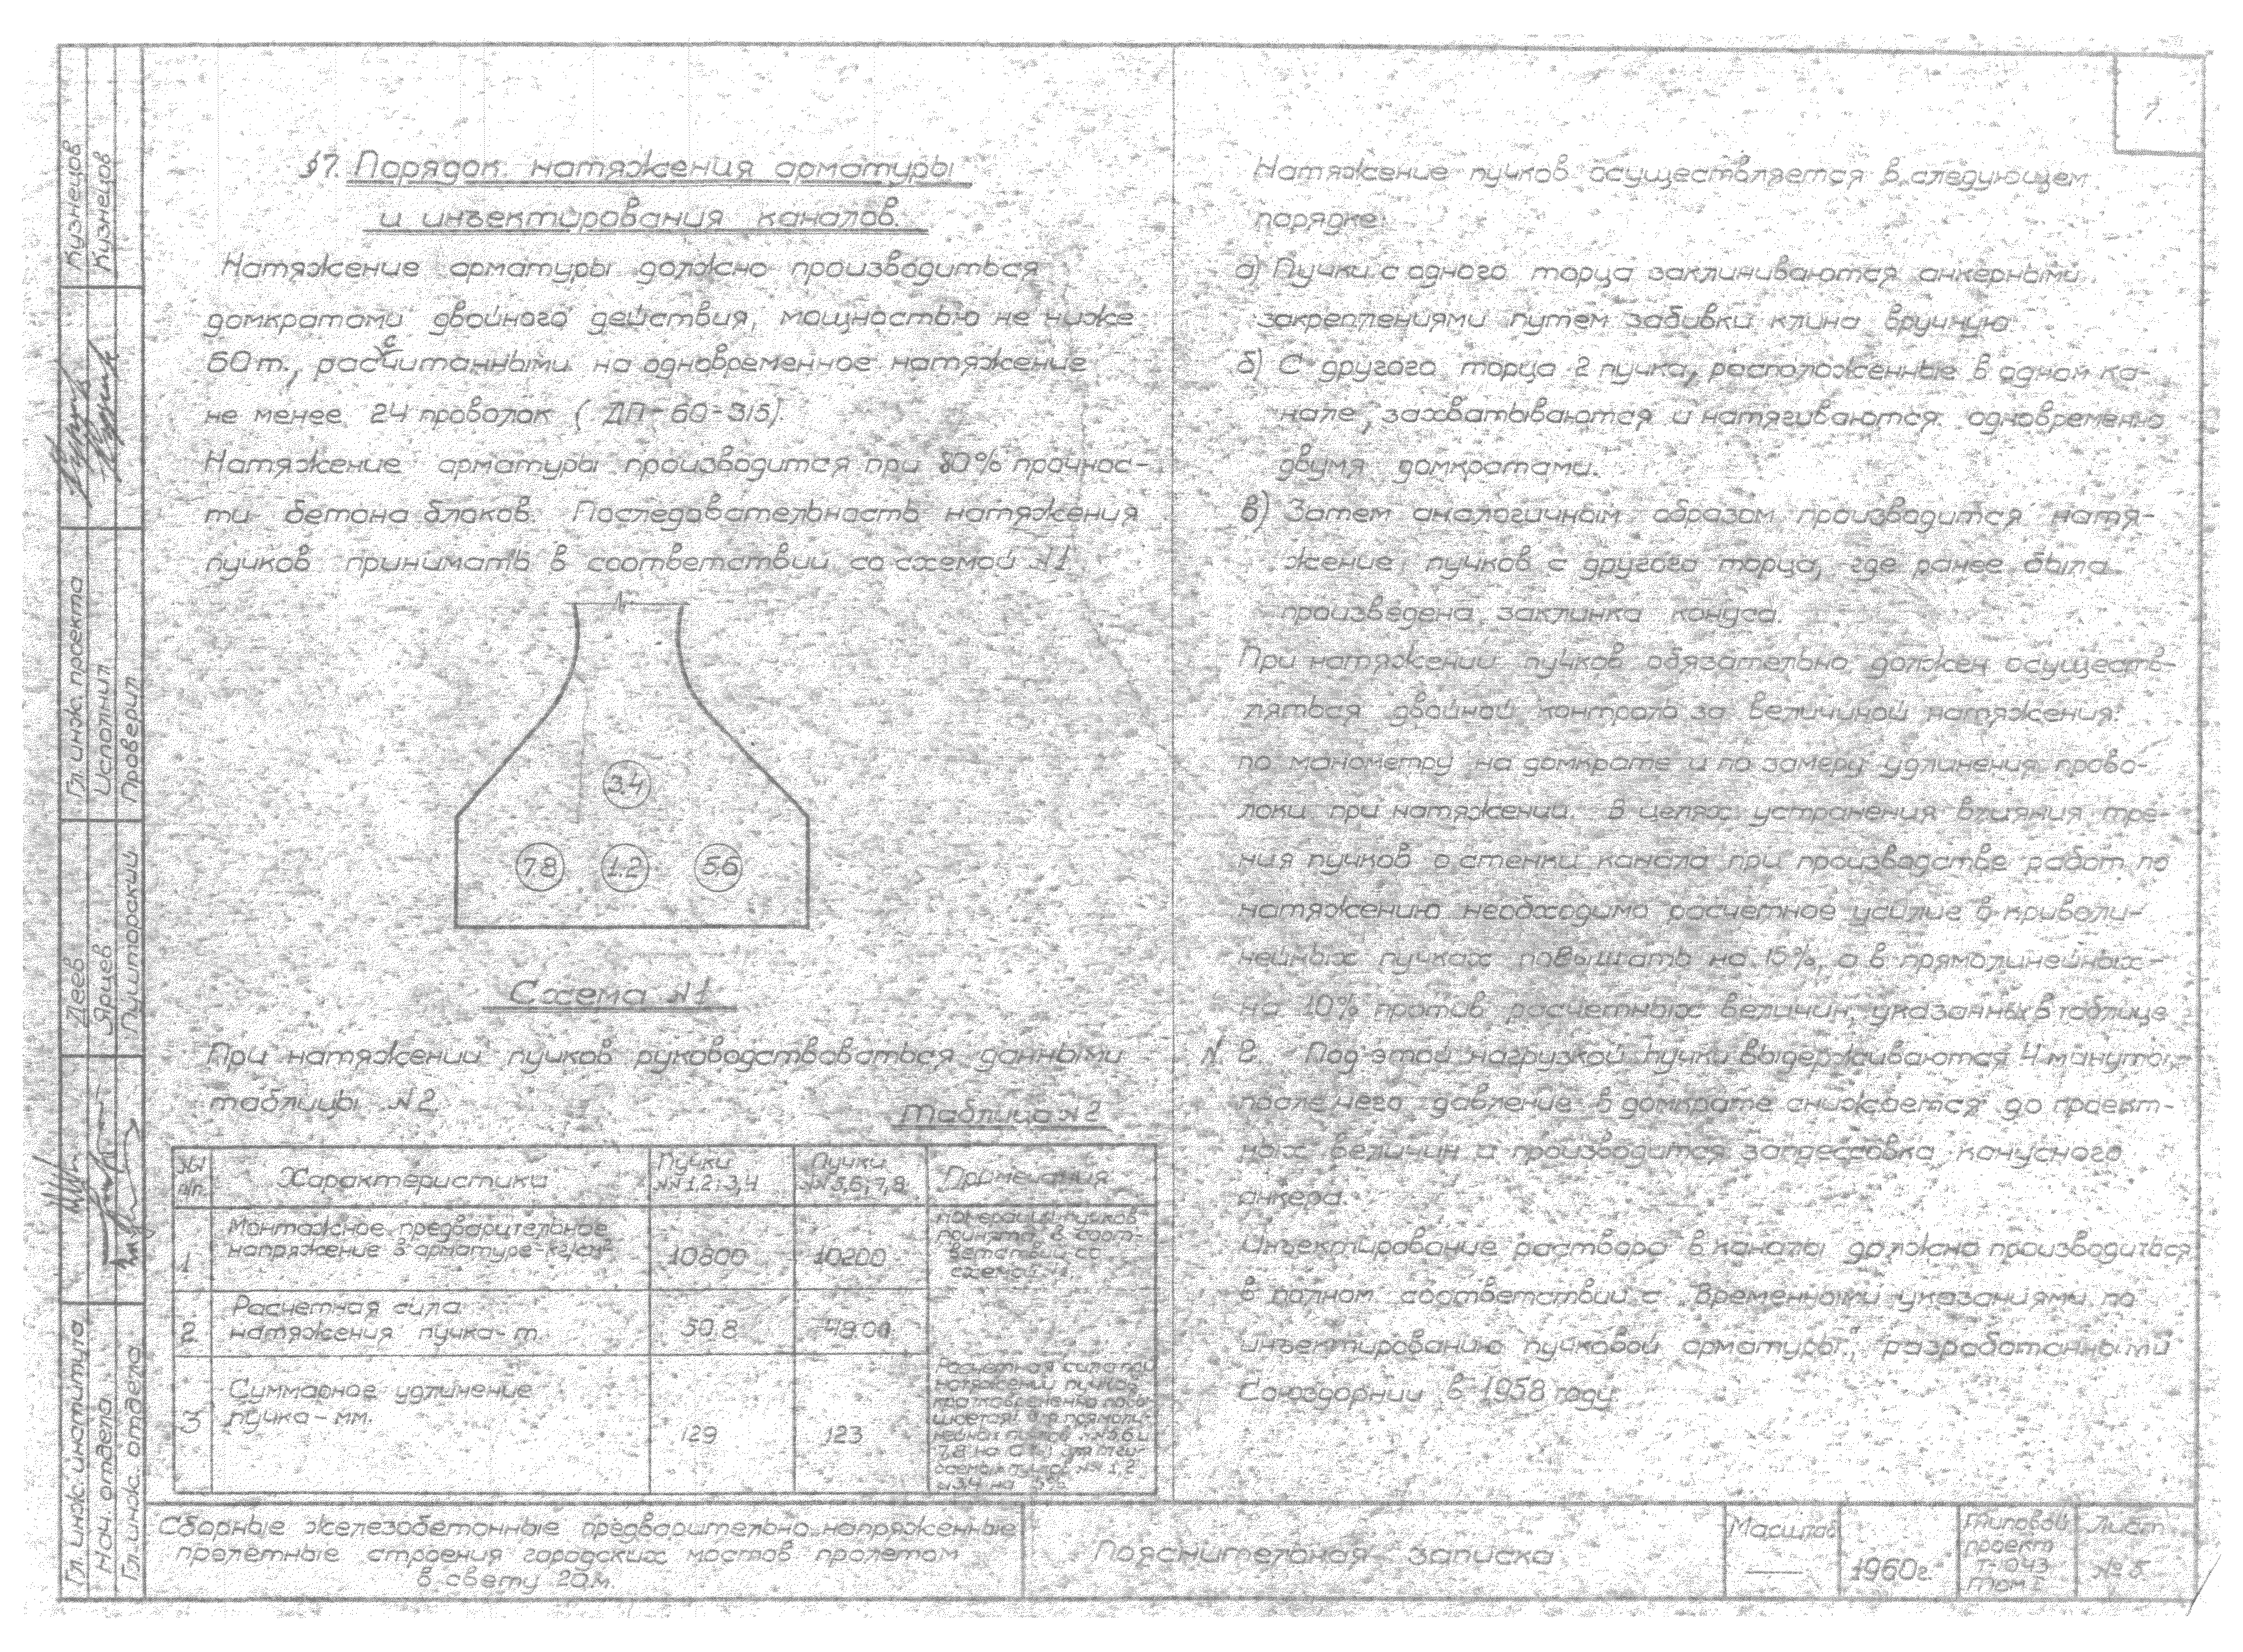 7.
§7. Порядок натяжения арматуры
и инъектирования каналов.
Натяжение арматуры должно производиться
домкратами двойного действия, мощностью не ниже
60 т., рассчитанными на одновременное натяжение
не менее 24 проволок (ДП-60-315).
Натяжение арматуры производится при 80% прочнос-
ти бетона блоков. Последовательность натяжения
пучков принимать в соответствии со схемой №1
3.4
7.8 1.2 5.6
Схема №1
При натяжении пучков руководствоваться данными
таблицы №2.
Таблица №2
№№ п/п. Характеристики Пучки №№ 1,2; 3,4 Пучки №№ 5,6; 7,8. Примечания
1 Монтажное предварительное
напряжение в арматуре-кг/см² 10800 10200
Нумерация пучков
принята в соот-
ветствии со
схемой №1.
2. Расчетная сила
натяжения пучка-т. 50.8 48.00
3 Суммарное удлинение
пучка-мм. 129 123
Расчетная сила при
натяжении пучков
Натяжение пучков осуществляется в следующем
порядке:
а) Пучки с одного торца заклиниваются анкерными
закреплениями путем забивки клина вручную
б) С другого торца 2 пучка, расположенные в одном ка-
нале, захватываются и натягиваются одновременно
двумя домкратами.
в) Затем аналогичным образом производится натя-
жение пучков с другого торца, где ранее была
произведена заклинка конуса.
При натяжении пучков обязательно должен осуществ-
ляться двойной контроль за величиной натяжения:
по манометру на домкрате и по замеру удлинения прово-
локи при натяжении. В целях устранения влияния тре-
ния пучков о стенки канала при производстве работ по
натяжению необходимо расчетное усилие в криволи-
нейных пучках повышать на 15%, а в прямолинейных-
на 10% против расчетных величин, указанных в таблице
№ 2. Под этой нагрузкой пучки выдерживаются 4 минуты,
после чего давление в домкрате снижается до проект-
ных величин и производится запрессовка конусного
анкера.
Инъектирование раствора в каналы должно производиться
в полном соответствии с „Временными указаниями по
инъектированию пучковой арматуры", разработанными
Союздорнии в 1958 году.
Сборные железобетонные предварительно напряженные
пролетные строения городских мостов пролетом
в свету 20 м.
Пояснительная записка
Масштаб
—
1960г.
Типовой
проект
Т-043
Том I
Лист
№ 5.
Гл. инж. института
Нач. отдела
Гл. инж. отдела
Деев
Ярцев
Пушторский
Гл. инж. проекта
Исполнил
Проверил
Кузнецов
Кузнецов